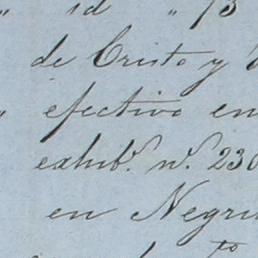 " id " 73
de Cristo y
" efectivo en
exhib.º n.º 230
en Negri
to